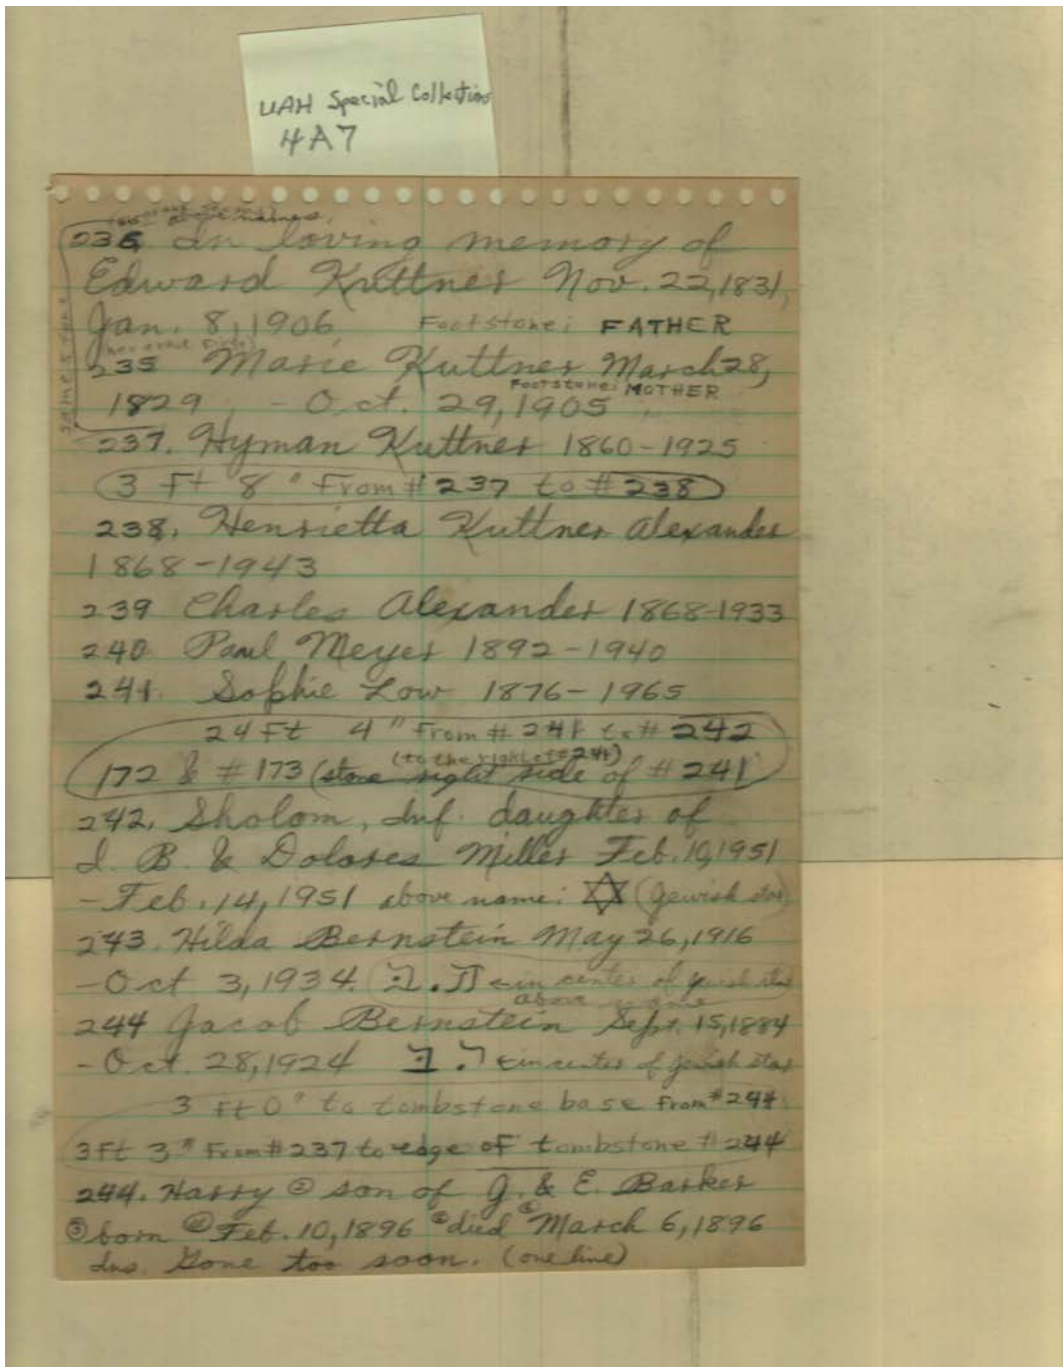 UAH Special Collections
4A7
above names.
236. In loving memory of
Edward Kuttner Nov. 22, 1831,
Jan. 8, 1906 Footstone: FATHER
same stone
235 Marie Kuttner March 28,
Footstone: MOTHER
1829, - Oct. 29, 1905
237. Hyman Kuttner 1860-1925
3 Ft 8" From #237 to #238
238. Henrietta Kuttner Alexander
1868-1943
239 Charles Alexander 1868-1933
240 Paul Meyer 1892-1940
241. Sophie Low 1876-1965
24 Ft 4" From #241 to #242
(to the right of #241)
172 & #173 (stone right side of #241
242. Sholom, Inf. daughter of
I. B. & Dolores Miller Feb. 10, 1951
- Feb. 14, 1951 above name: ✡ (Jewish star)
243. Hilda Bernstein May 26, 1916
- Oct 3, 1934. in center of Jewish star
above name
244 Jacob Bernstein Sept. 15, 1884
- Oct. 28, 1924 in center of Jewish star
3 Ft 0" to tombstone base From #244
3 Ft 3" From #237 to edge of tombstone #244
244. Harry ② son of G. & E. Barker
③ born ④ Feb. 10, 1896 ⑤ died ⑥ March 6, 1896
Ins. Gone too soon. (one line)